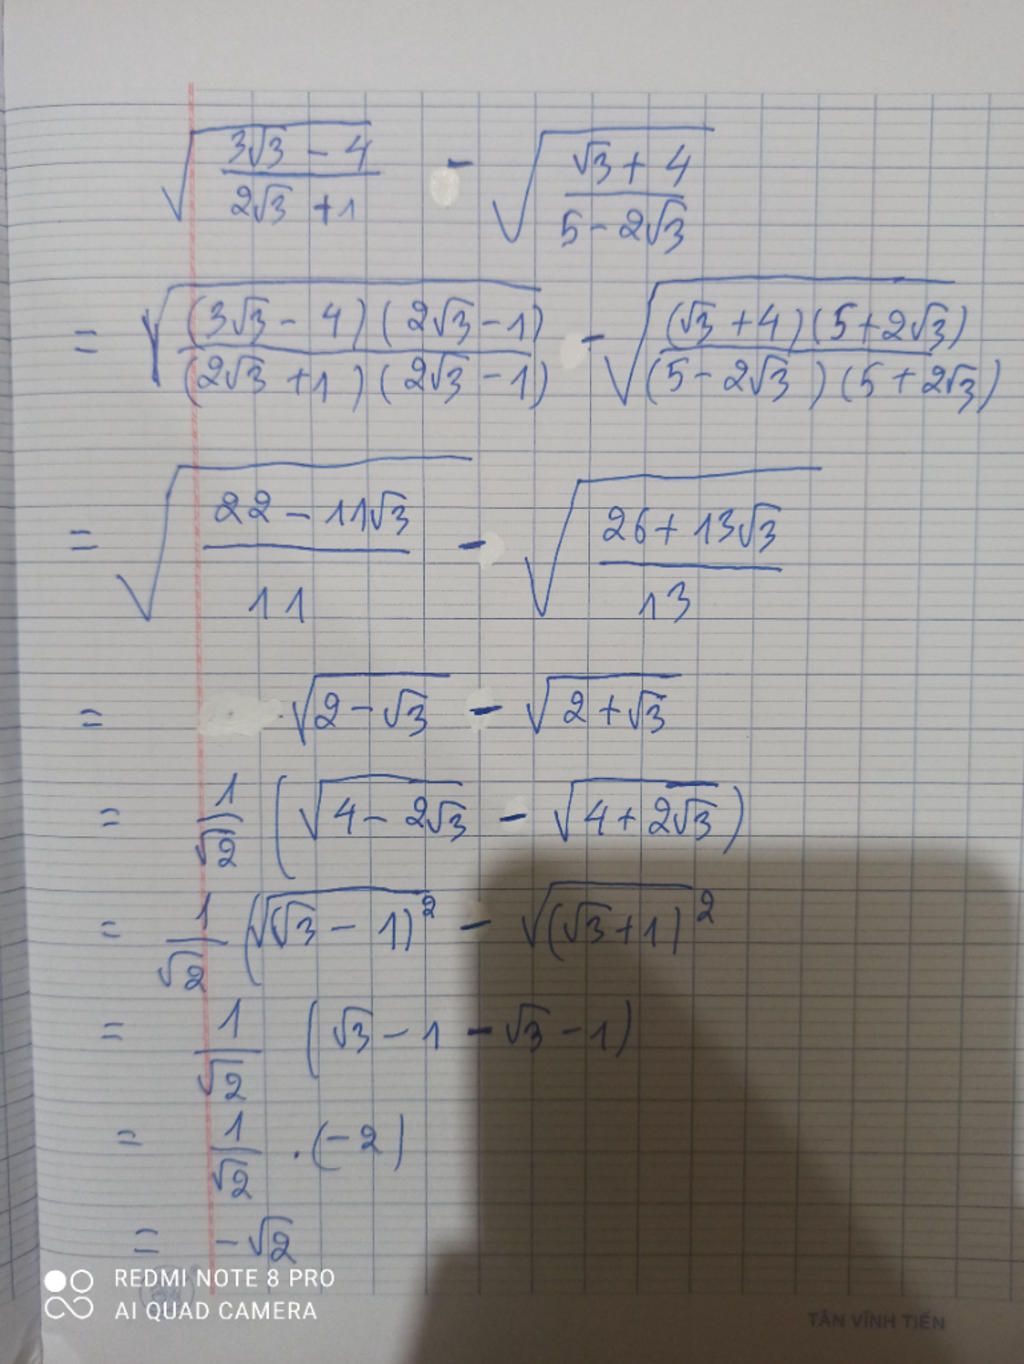 √((3√3 - 4)/(2√3 + 1)) - √((√3 + 4)/(5 - 2√3))
= √(((3√3 - 4)(2√3 - 1))/((2√3 + 1)(2√3 - 1))) - √(((√3 + 4)(5 + 2√3))/((5 - 2√3)(5 + 2√3)))
= √((22 - 11√3)/11) - √((26 + 13√3)/13)
= √(2 - √3) - √(2 + √3)
= 1/√2 (√(4 - 2√3) - √(4 + 2√3))
= 1/√2 (√(√3 - 1)² - √(√3 + 1)²
= 1/√2 (√3 - 1 - √3 - 1)
= 1/√2 . (-2)
= -√2
REDMI NOTE 8 PRO
AI QUAD CAMERA
TÂN VĨNH TIẾN